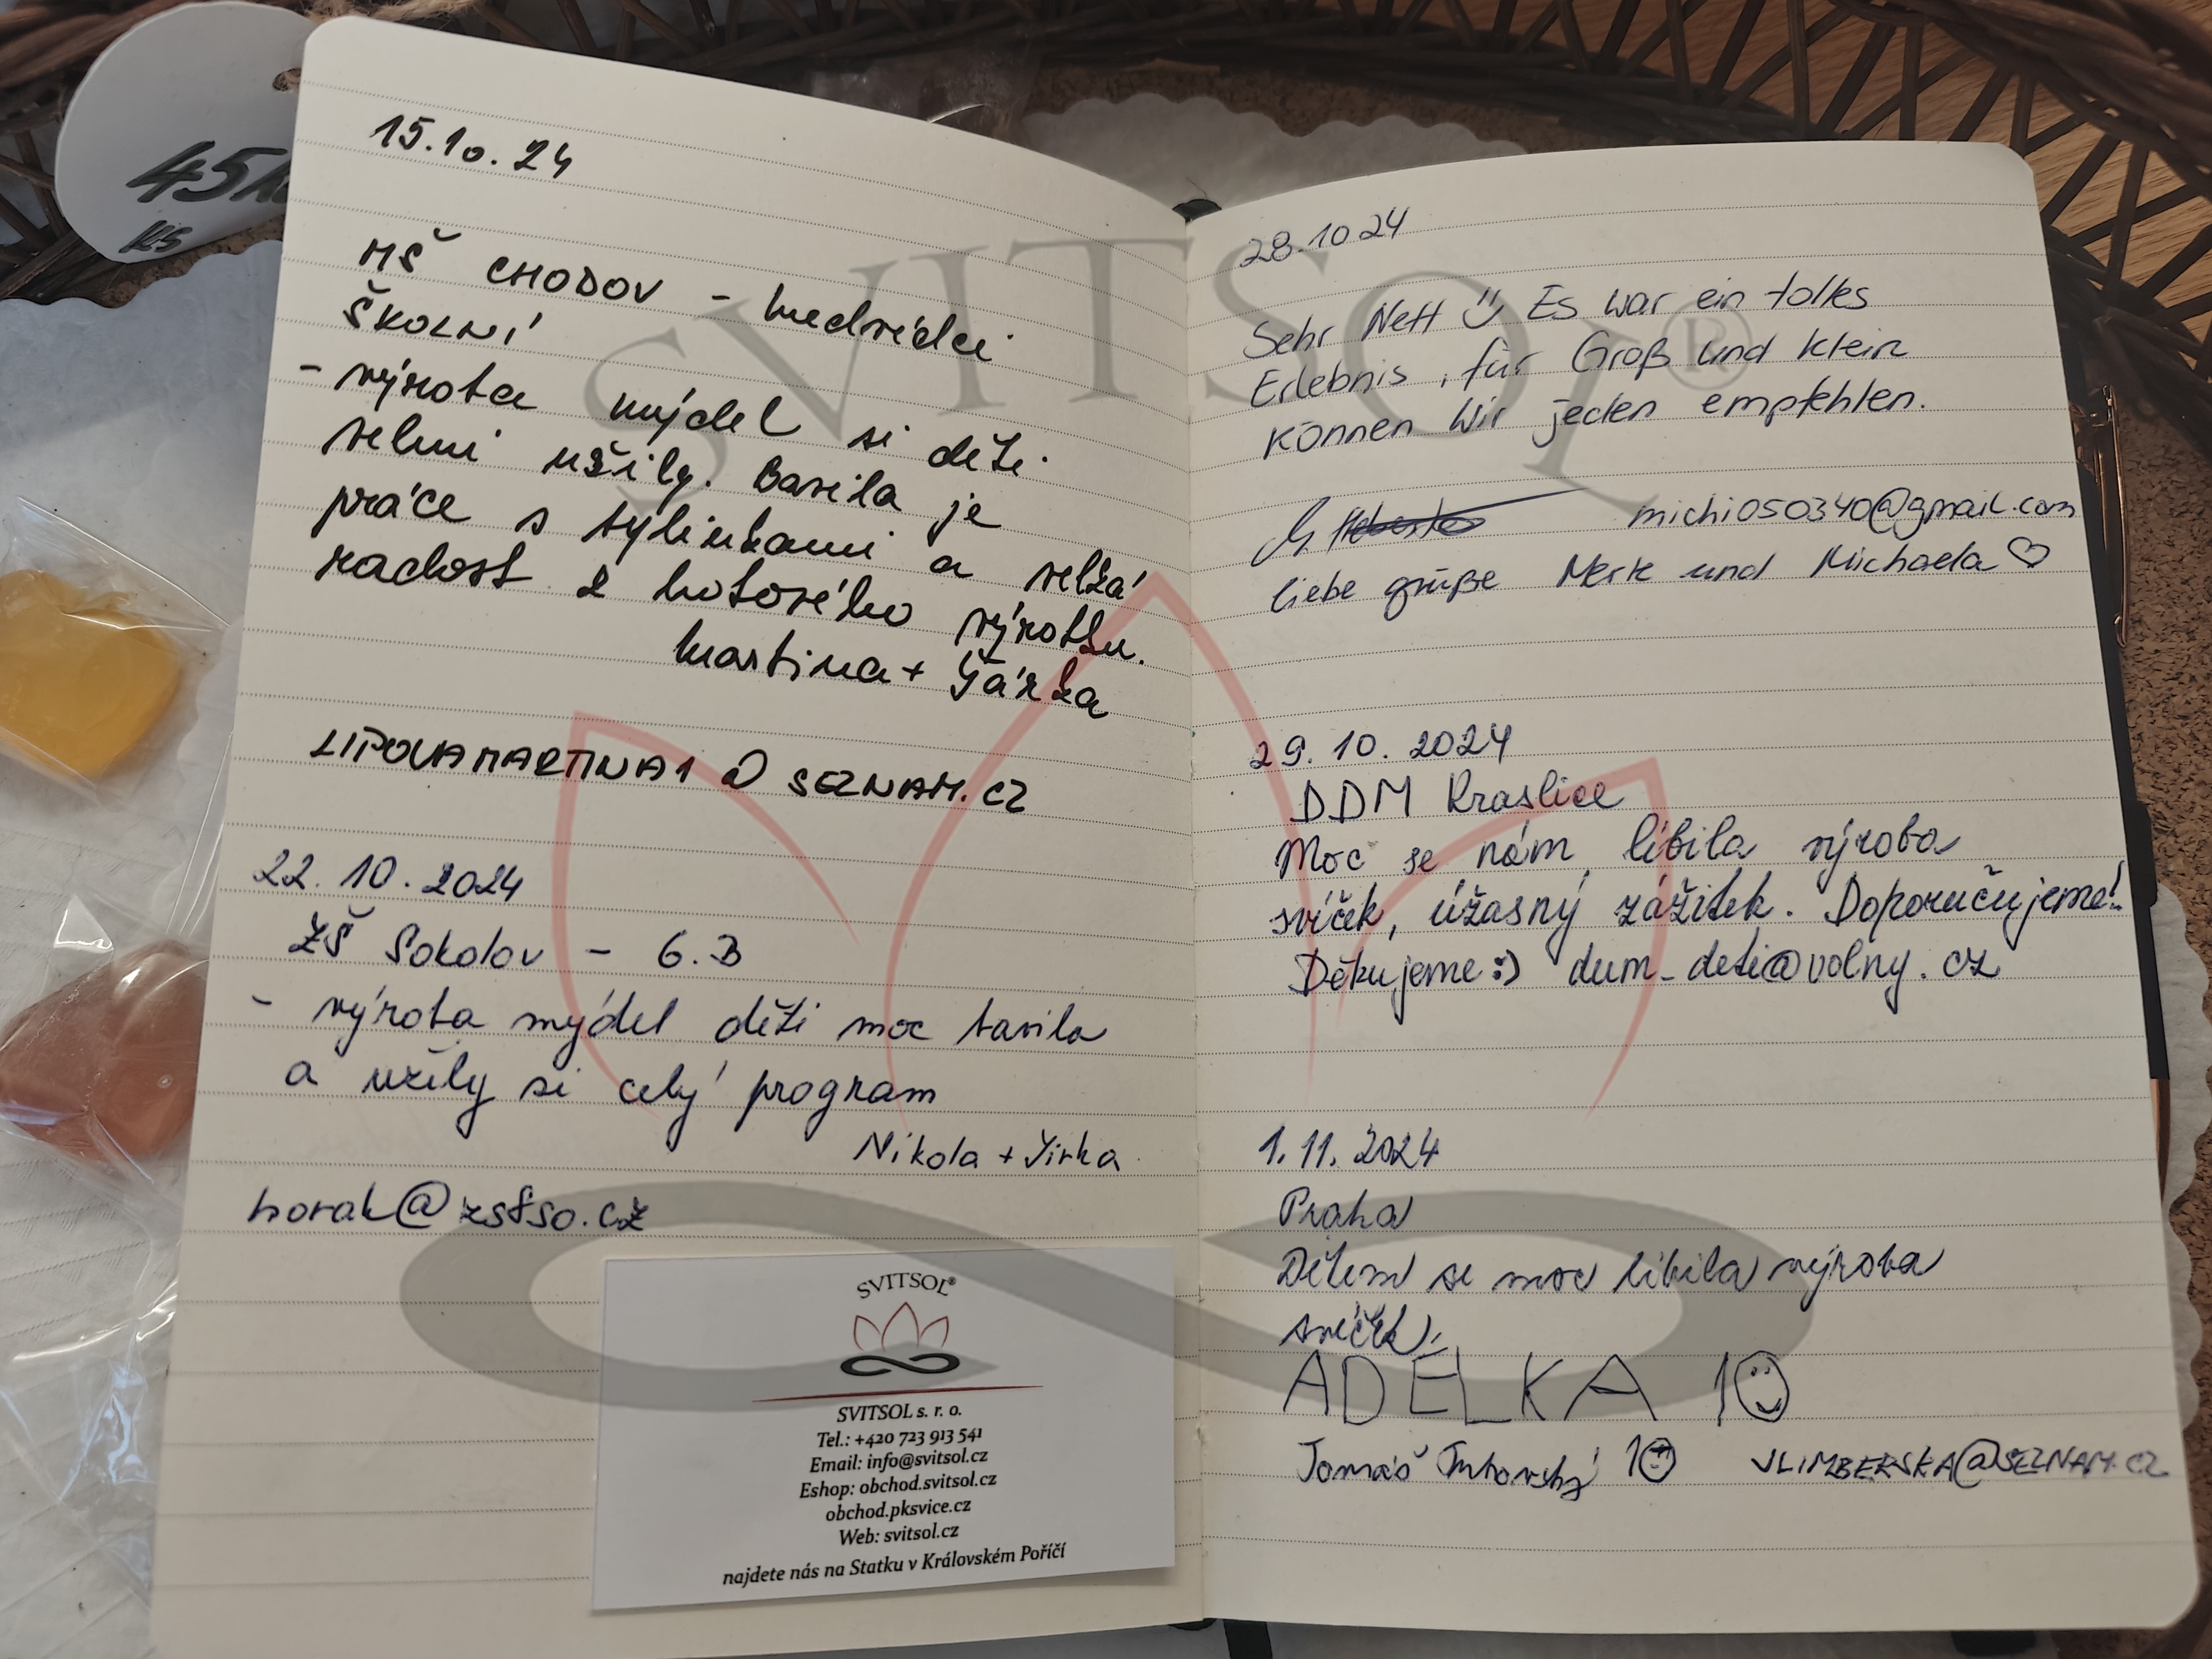 45Kč
KS
15.10.24
MŠ CHODOV - medvídci
ŠKOLNÍ
- výroba mýdel si děti
velmi užily. Bavila je
práce s bylinkami a velká
radost z hotového výrobku.
Martina + Šárka
LIPOVAMARTINA1@SEZNAM.CZ
22.10.2024
ZŠ Sokolov - 6.B
- výroba mýdel děti moc bavila
a užily si celý program
Nikola + Jirka
horak@zs8so.cz
SVITSOL®
SVITSOL s. r. o.
Tel.: +420 723 913 541
Email: info@svitsol.cz
Eshop: obchod.svitsol.cz
obchod.pksvice.cz
Web: svitsol.cz
najdete nás na Statku v Královském Poříčí
28.10 24
Sehr Nett Es war ein tolles
Erlebnis, für Groß und Klein
können Wir jeden empfehlen.
michi050340@gmail.com
liebe grüße und Michaela ♡
29.10.2024
DDM Kraslice
Moc se nám líbila výroba
svíček, úžasný zážitek. Doporučujeme!
Děkujeme :) dum_deti@volny.cz
1.11.2024
Praha
Dětem se moc líbila výroba
svíček.
ADÉLKA 10
Tomáš 10 VLIMBERSKA@SEZNAM.CZ
SVITSOL®